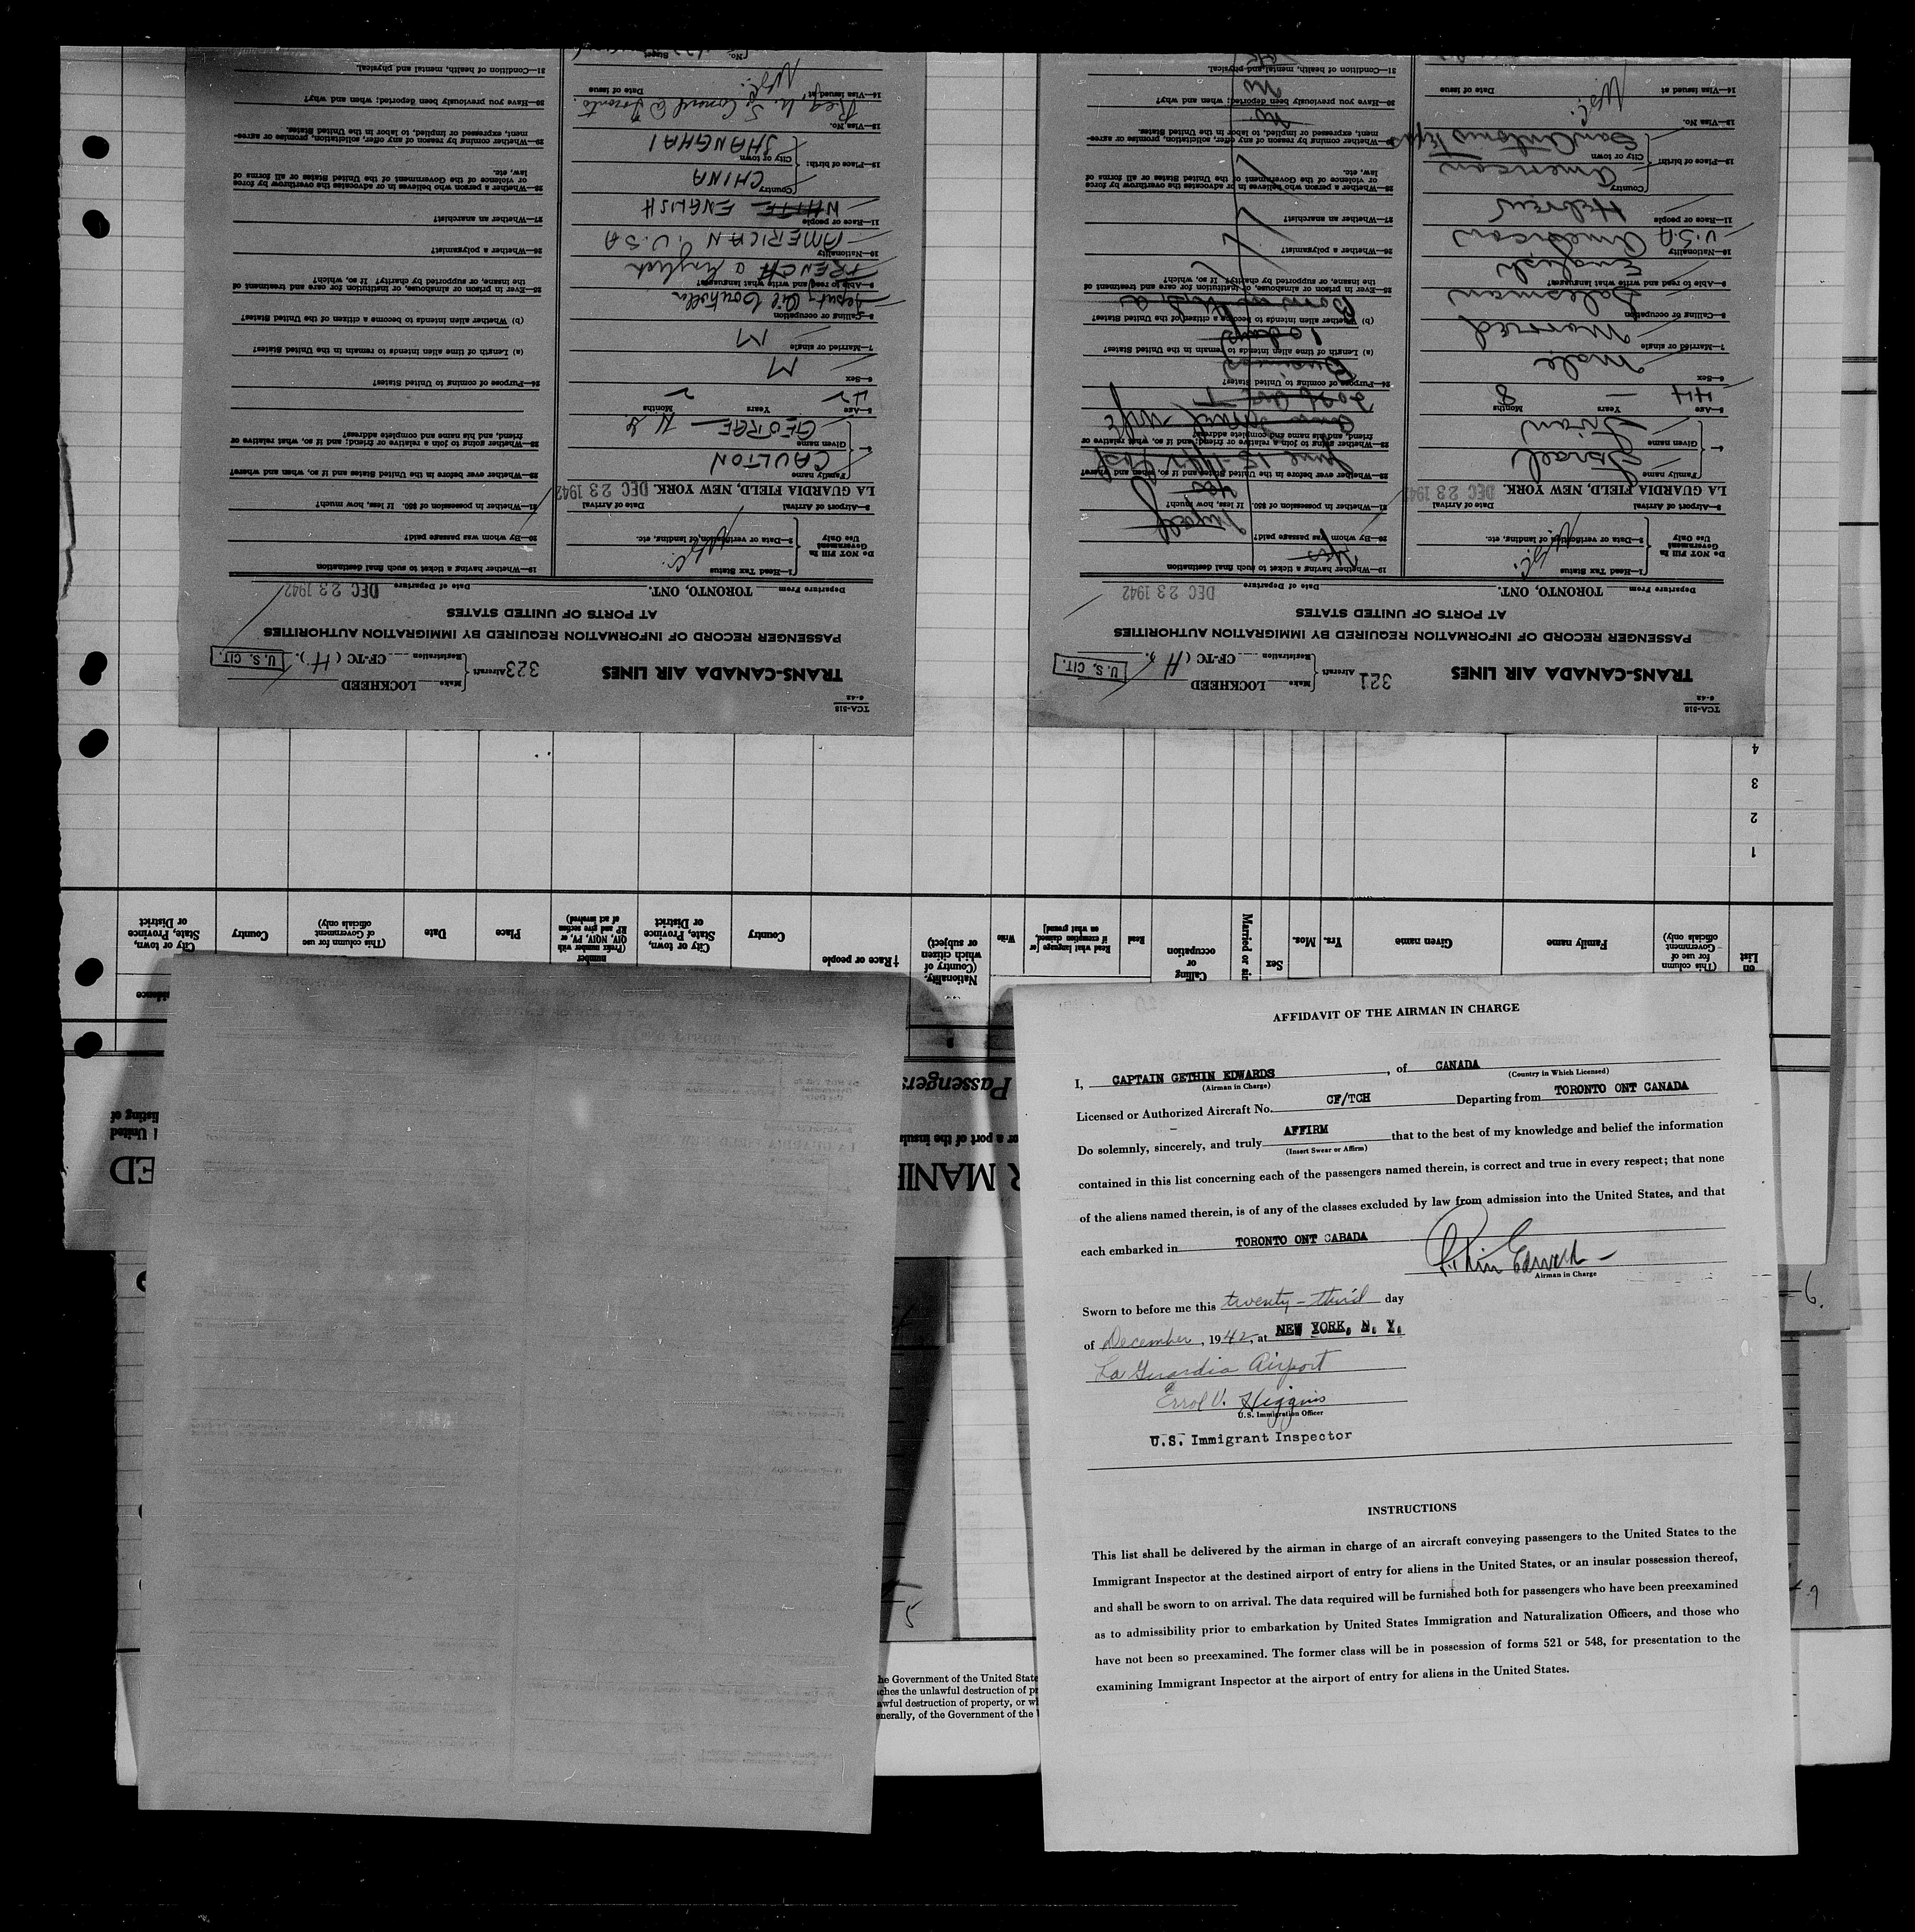 AFFIDAVIT OF THE AIRMAN IN CHARGE
I, CAPTAIN GETHIN EDWARDS, of CANADA
(Airman in Charge) (Country in Which Licensed)
Licensed or Authorized Aircraft No. CF/TCH Departing from TORONTO ONT CANADA
Do solemnly, sincerely, and truly AFFIRM that to the best of my knowledge and belief the information
(Insert Swear or Affirm)
contained in this list concerning each of the passengers named therein, is correct and true in every respect; that none
of the aliens named therein, is of any of the classes excluded by law from admission into the United States, and that
each embarked in TORONTO ONT CABADA
Airman in Charge
Sworn to before me this twenty-third day
of December, 1942, at NEW YORK, N. Y.
La Guardia Airport
Errol V. Higgins
U.S. Immigration Officer
U.S. Immigrant Inspector
INSTRUCTIONS
This list shall be delivered by the airman in charge of an aircraft conveying passengers to the United States to the
Immigrant Inspector at the destined airport of entry for aliens in the United States, or an insular possession thereof,
and shall be sworn to on arrival. The data required will be furnished both for passengers who have been preexamined
as to admissibility prior to embarkation by United States Immigration and Naturalization Officers, and those who
have not been so preexamined. The former class will be in possession of forms 521 or 548, for presentation to the
examining Immigrant Inspector at the airport of entry for aliens in the United States.
he Government of the United State
ches the unlawful destruction of pr
awful destruction of property, or wh
enerally, of the Government of the
TCA-518
6-42
TRANS-CANADA AIR LINES
321
Aircraft
Make LOCKHEED
Registration CF-TC (H).
U. S. CIT.
PASSENGER RECORD OF INFORMATION REQUIRED BY IMMIGRATION AUTHORITIES
AT PORTS OF UNITED STATES
Departure From TORONTO, ONT. Date of Departure DEC 23 1942
Do NOT Fill In
Government
Use Only
1—Head Tax Status
2—Data or verification of landing, etc.
3—Airport of Arrival Date of Arrival
LA GUARDIA FIELD, NEW YORK. DEC 23 1942
4—
Family name Israel
Given name Sivan
5—Age 44 Years — Months 8
6—Sex Male
7—Married or single Married
8—Calling or occupation Salesman
9—Able to read and write what languages? English
10—Nationality U.S.A American
11—Race or people Hebrew
12—Place of birth: Country American
City or town San Antonio Texas
13—Visa No.
14—Visa issued at Date of issue
19—Whether having a ticket to such final destination Yes
20—By whom was passage paid? Myself
21—Whether in possession of $50. If less, how much? Yes
22—Whether ever before in the United States and if so, when and where?
23—Whether going to join a relative or friend; and if so, what relative or
friend, and his name and complete address?
24—Purpose of coming to United States? Business
(a) Length of time alien intends to remain in the United States? 10 days
(b) Whether alien intends to become a citizen of the United States? Born in U.S.A
25—Ever in prison or almshouse, or institution for care and treatment of
the insane, or supported by charity? If so, which?
26—Whether a polygamist?
27—Whether an anarchist?
28—Whether a person who believes in or advocates the overthrow by force
or violence of the Government of the United States or all forms of
law, etc.
29—Whether coming by reason of any offer, solicitation, promise or agree-
ment, expressed or implied, to labor in the United States. No
30—Have you previously been deported; when and why? No
31—Condition of health, mental and physical.
TCA-518
6-42
TRANS-CANADA AIR LINES
323
Aircraft
Make LOCKHEED
Registration CF-TC (H).
U. S. CIT.
PASSENGER RECORD OF INFORMATION REQUIRED BY IMMIGRATION AUTHORITIES
AT PORTS OF UNITED STATES
Departure From TORONTO, ONT. Date of Departure DEC 23 1942
Do NOT Fill In
Government
Use Only
1—Head Tax Status
2—Data or verification of landing, etc.
3—Airport of Arrival Date of Arrival
LA GUARDIA FIELD, NEW YORK. DEC 23 1942
4—
Family name CAULTON
Given name GEORGE
5—Age 42 Years Months 2
6—Sex M
7—Married or single M
8—Calling or occupation
9—Able to read and write what languages? FRENCH English
10—Nationality AMERICAN, U.S.A
11—Race or people WHITE ENGLISH
12—Place of birth: Country CHINA
City or town SHANGHAI
13—Visa No.
14—Visa issued at Date of issue
No. Street
19—Whether having a ticket to such final destination
20—By whom was passage paid?
21—Whether in possession of $50. If less, how much?
22—Whether ever before in the United States and if so, when and where?
23—Whether going to join a relative or friend; and if so, what relative or
friend, and his name and complete address?
24—Purpose of coming to United States?
(a) Length of time alien intends to remain in the United States?
(b) Whether alien intends to become a citizen of the United States?
25—Ever in prison or almshouse, or institution for care and treatment of
the insane, or supported by charity? If so, which?
26—Whether a polygamist?
27—Whether an anarchist?
28—Whether a person who believes in or advocates the overthrow by force
or violence of the Government of the United States or all forms of
law, etc.
29—Whether coming by reason of any offer, solicitation, promise or agree-
ment, expressed or implied, to labor in the United States.
30—Have you previously been deported; when and why?
31—Condition of health, mental and physical.
Passengers
or a port of the insula
R MANI
listing of
United
ED
on
List
(This column
for use of
Government
officials only)
Family name
Given name
Yrs.
Mos.
Sex
Married or sin
Calling
or
occupation
Read
Read what language [or
if exemption claimed,
on what ground]
Write
Nationality.
(Country of
which citizen
or subject)
†Race or people
Country
City or town,
State, Province
or District
number
(Prefix number with
QIV, NQIV, PV, or
RP and give section
of act involved)
Place
Date
(This column for use
of Government
officials only)
Country
City or town,
State, Province
or District
1
2
3
4